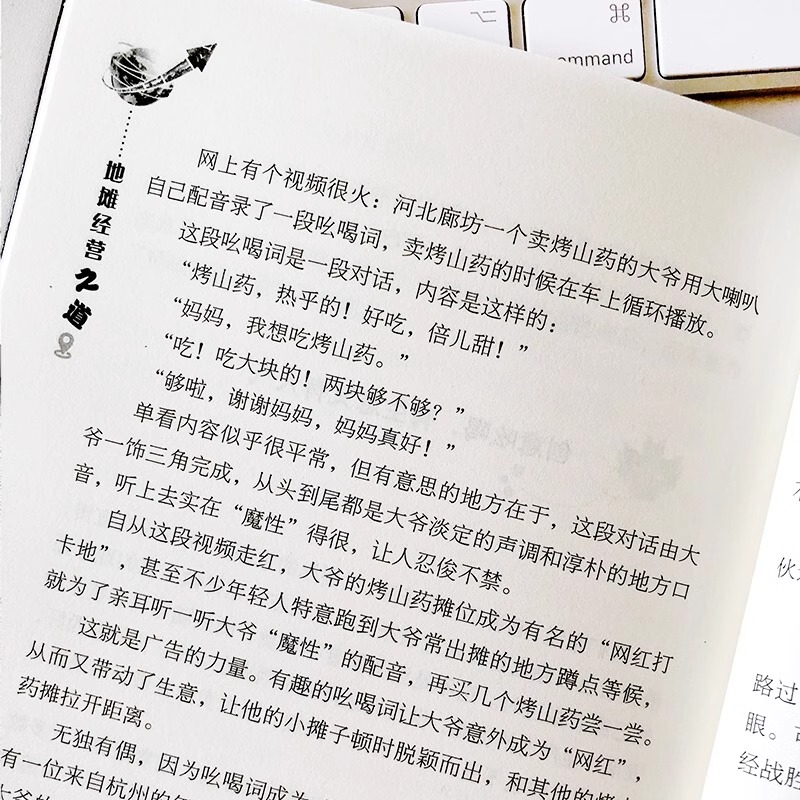 ⌥
⌘
command
地摊经营之道
网上有个视频很火：河北廊坊一个卖烤山药的大爷用大喇叭
自己配音录了一段吆喝词，卖烤山药的时候在车上循环播放。
这段吆喝词是一段对话，内容是这样的：
“烤山药，热乎的！好吃，倍儿甜！”
“妈妈，我想吃烤山药。”
“吃！吃大块的！两块够不够？”
“够啦，谢谢妈妈，妈妈真好！”
单看内容似乎很平常，但有意思的地方在于，这段对话由大
爷一饰三角完成，从头到尾都是大爷淡定的声调和淳朴的地方口
音，听上去实在“魔性”得很，让人忍俊不禁。
自从这段视频走红，大爷的烤山药摊位成为有名的“网红打
卡地”，甚至不少年轻人特意跑到大爷常出摊的地方蹲点等候，
就为了亲耳听一听大爷“魔性”的配音，再买几个烤山药尝一尝。
这就是广告的力量。有趣的吆喝词让大爷意外成为“网红”，
从而又带动了生意，让他的小摊子顿时脱颖而出，和其他的烤山
药摊拉开距离。
无独有偶，因为吆喝词成为
有一位来自杭州的
大爷的
伙
路过
眼。
经战胜